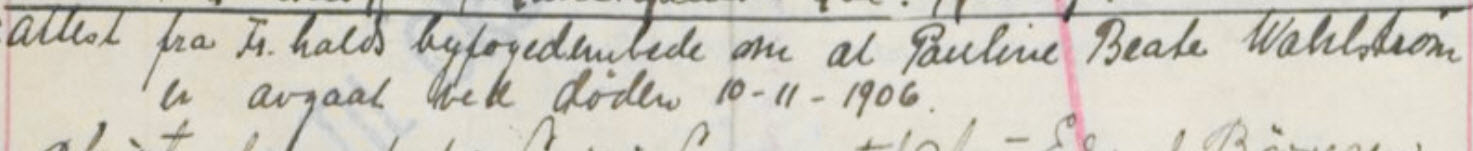 attest fra Fr.halds byfogedembede om at Pauline Beate Wahlstrøm
er avgaat ved døden 10-11-1906.